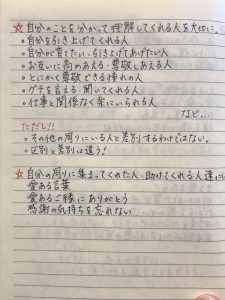 ☆自分のことを分かって理解してくれる人を大切に。
・自分を引き上げてくれる人
・自分が育てたい、引き上げてあげたい人
・お互いに高めあえる・尊敬しあえる人
・とにかく尊敬できる憧れの人
・グチを言える・聞いてくれる人
・仕事と関係なく楽にいられる人
など…
ただし!!
・その他の周りにいる人と差別するわけではない。
・区別と差別は違う!
☆自分の周りに集まってくれた人、助けてくれる人達に
愛ある言葉
愛あるご縁にありがとう
感謝の気持ちを忘れない